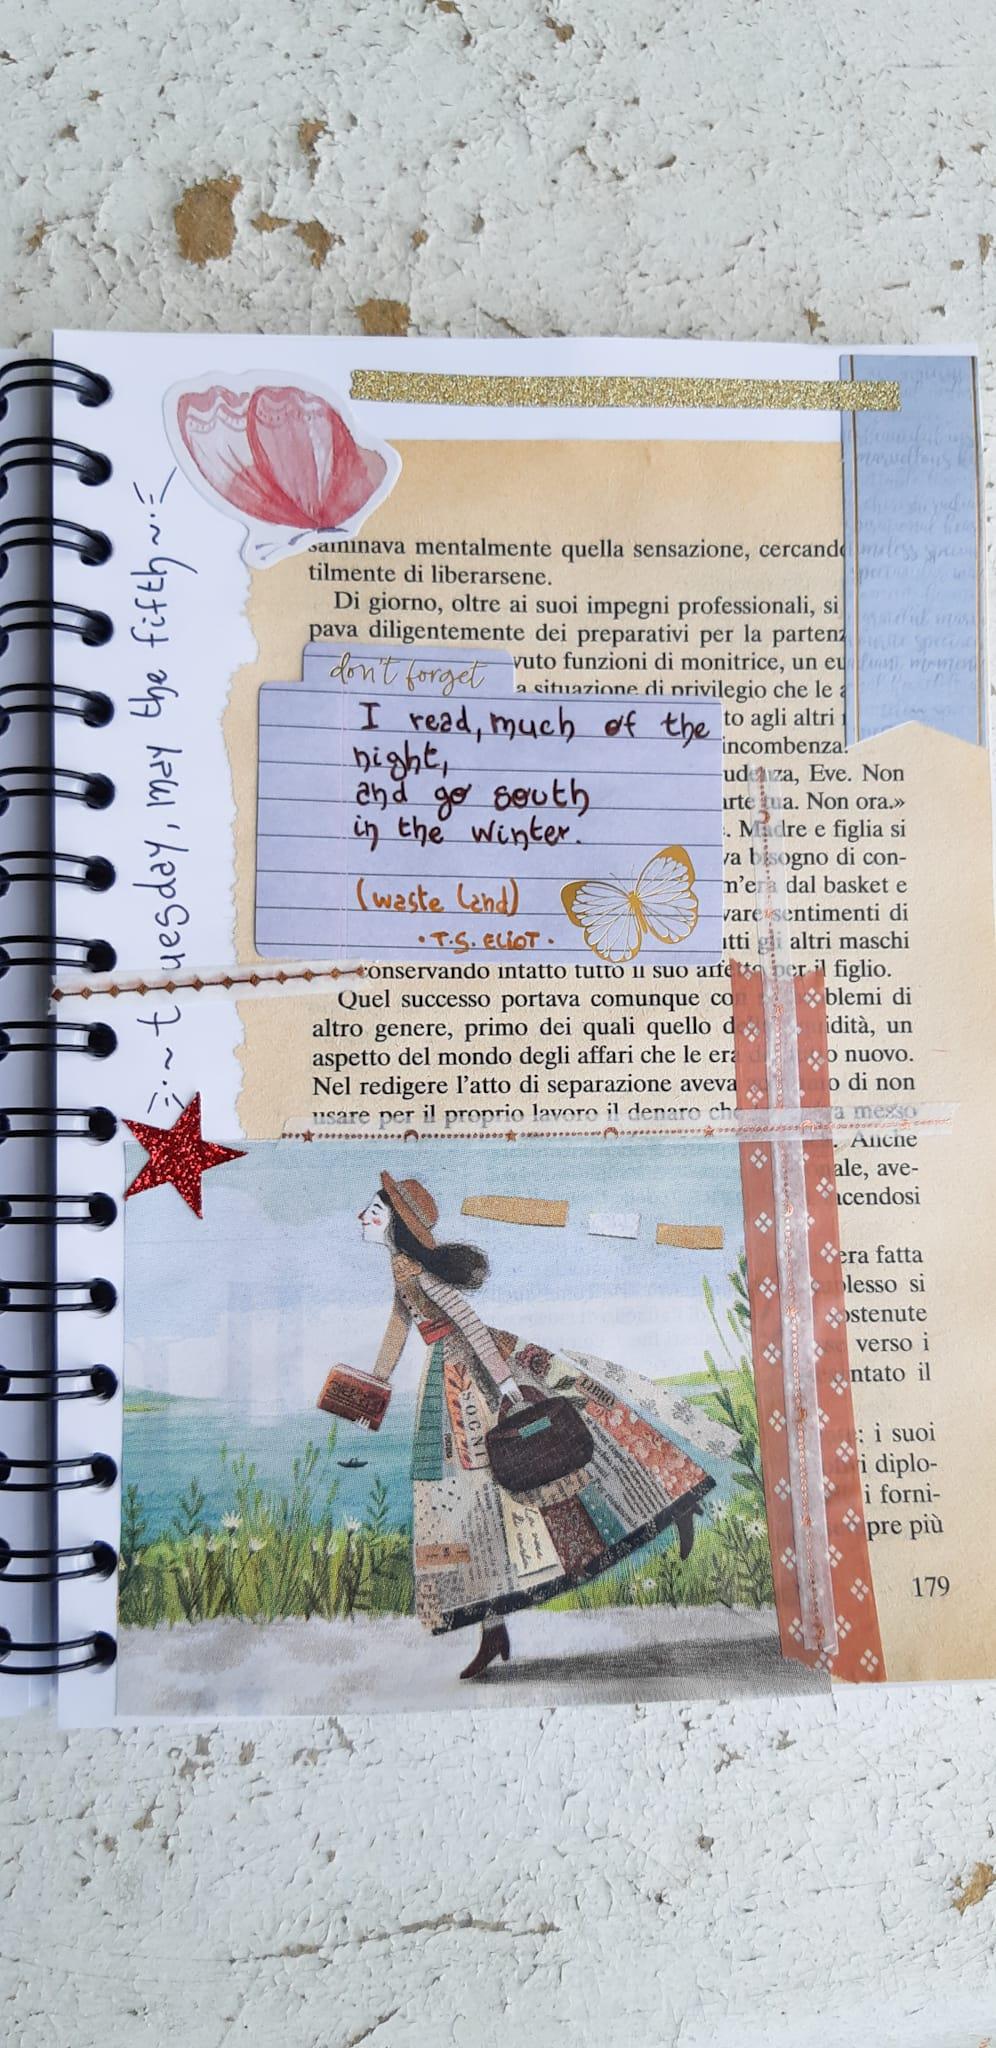 ~tuesday, may the fifth~
saminava mentalmente quella sensazione, cercando
tilmente di liberarsene.
Di giorno, oltre ai suoi impegni professionali, si
pava diligentemente dei preparativi per la partenz
don't forget
vuto funzioni di monitrice, un
a situazione di privilegio che le
to agli altri
incombenza.
I read, much of the
night,
and go south
in the winter.
(waste land)
•T.S. ELIOT•
za, Eve. Non
ua. Non ora.»
Madre e figlia si
va bisogno di con-
m'era dal basket e
vare sentimenti di
tti gli altri maschi
conservando intatto tutto il suo affetto per il figlio.
Quel successo portava comunque con blemi di
altro genere, primo dei quali quello d idità, un
aspetto del mondo degli affari che le era o nuovo.
Nel redigere l'atto di separazione aveva o di non
usare per il proprio lavoro il denaro che a messo
Anche
ale, ave-
acendosi
era fatta
plesso si
ostenute
verso i
ntato il
: i suoi
i diplo-
i forni-
pre più
179
SOGNI